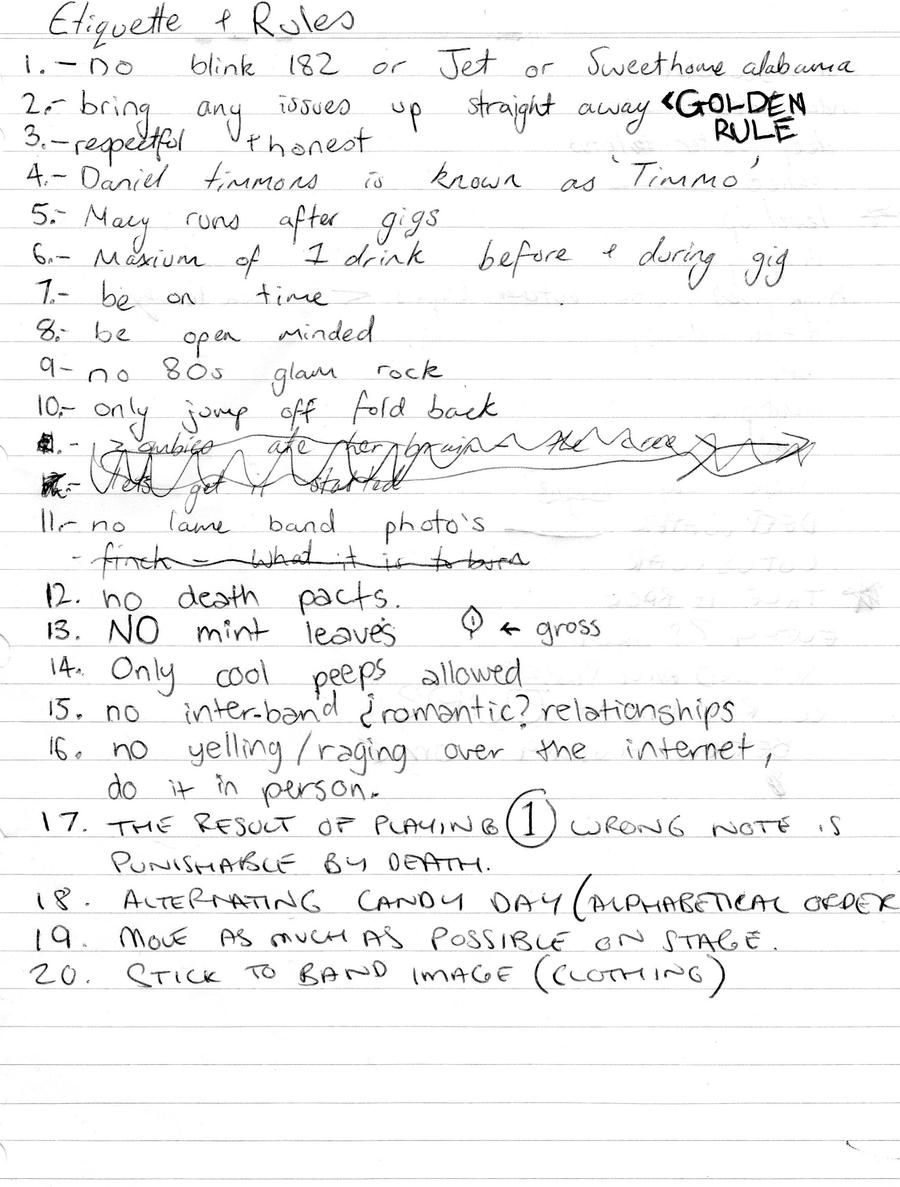 Etiquette + Rules
1. - no blink 182 or Jet or Sweethome alabama
2.- bring any issues up straight away < GOLDEN
RULE
3. - respectful + honest
4. - Daniel timmons is known as 'Timmo'
5.- Macy runs after gigs
6.- Maxium of 1 drink before + during gig
7.- be on time
8.- be open minded
9- no 80s glam rock
10.- only jump off fold back
.- Zombies ate her brain
.- lets get it started
11.- no lame band photo's
- finch - What it is to burn
12. no death pacts.
13. NO mint leaves ← gross
14. Only cool peeps allowed
15. no inter-band ¿romantic? relationships
16. no yelling/raging over the internet,
do it in person.
17. THE RESULT OF PLAYING 1 WRONG NOTE IS
PUNISHABLE BY DEATH.
18. ALTERNATING CANDY DAY (ALPHABETICAL ORDER
19. MOVE AS MUCH AS POSSIBLE ON STAGE.
20. STICK TO BAND IMAGE (CLOTHING)